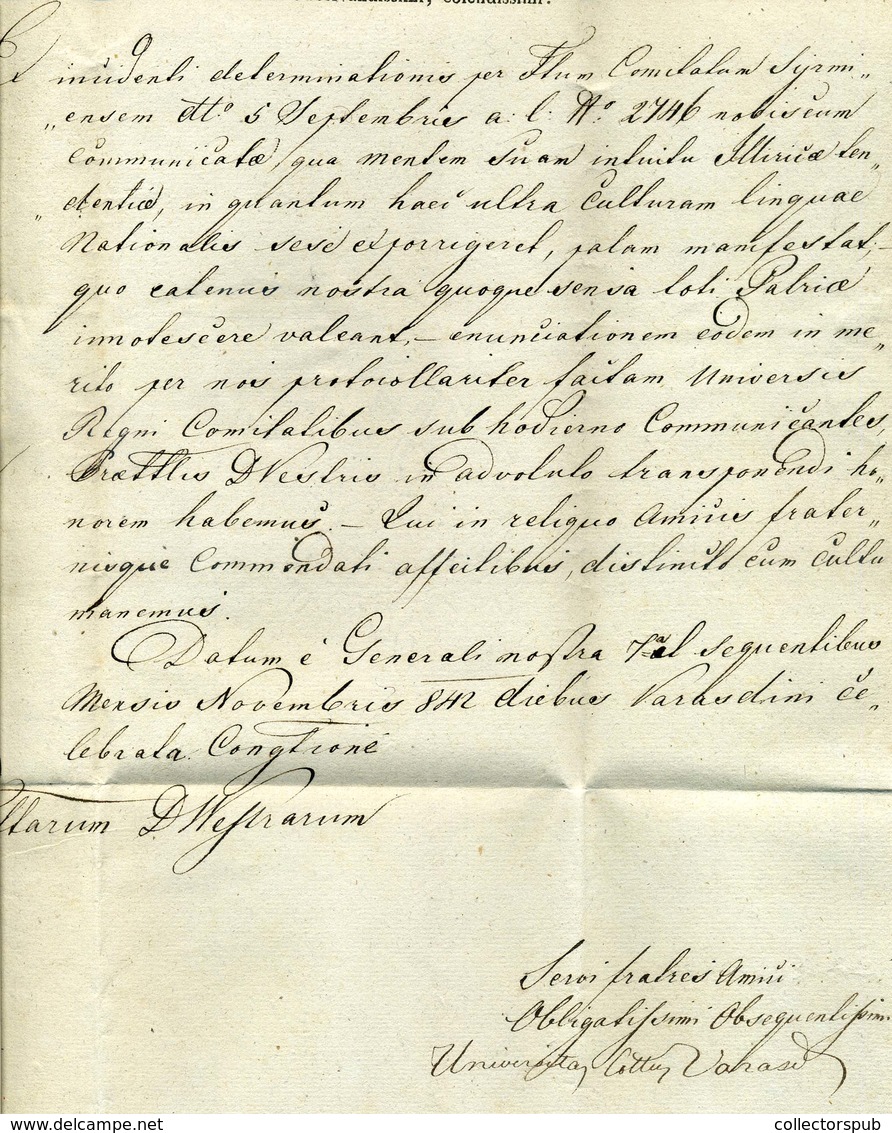 colendissimi.
Ex incidenti determinationis per Ittum Comitatum Syrmi„
„ensem dtto 5 Septembris a: l: No. 2746 nobiscum
Communicatæ, qua mentem suam intuitu Illiricæ ten„
„dentiæ, in quantum haec ultra Culturam linguae
Nationalis sese exporrigeret, palam manifestat;–
quo eatenus nostra quoque sensa toti Patriæ
innotescere valeant,– enunciationem eodem in me„
rito per nos protocollariter factam Universis
Regni Comitatibus sub hodierno Communicantes,
Prættlis DVestris in advoluto transponendi ho„
norem habemus. – Qui in reliquo amicis frater„
nisque Commendati affectibus, distincto cum cultu
manemus.
Datum e Generali nostra 7a et sequentibus
Mensis Novembris 842 diebus Varasdini ce„
lebrata Congtione
ttarum DVestrarum
Servi fratres Amici
Obligatissimi Obsequentissimi
Universitas Cottus Varasd
Delcampe.net
collectorspub